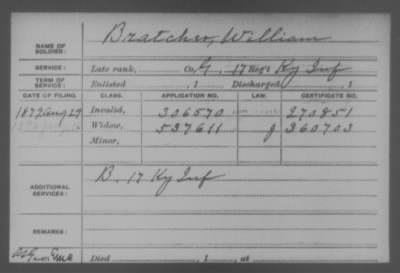 NAME OF SOLDIER: Bratcher, William
SERVICE: Late rank, Co. G, 17 Reg't Ky Inf
TERM OF SERVICE: Enlisted , 1 Discharged , 1
DATE OF FILING. CLASS. APPLICATION NO. LAW. CERTIFICATE NO.
1879 Aug 29 Invalid, 306570 270851
Widow, 537611 g 360703
Minor,
ADDITIONAL SERVICES: B. 17 Ky Inf
REMARKS:
Died , 1 , at